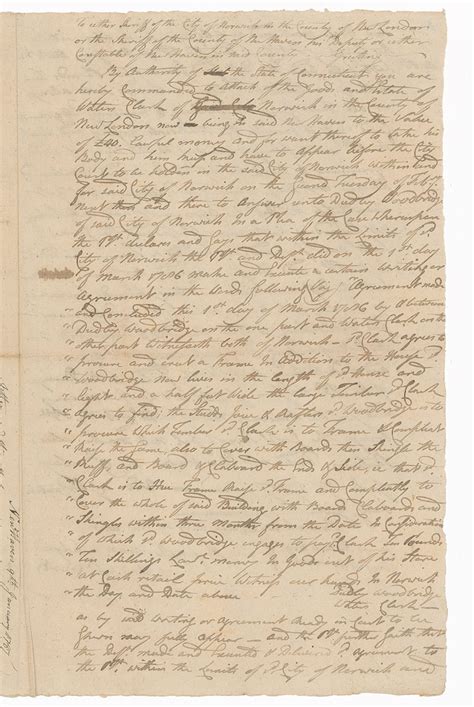 to either Sheriff of the City of Norwich in the County of New London
or the Sheriff of the County of New Haven his Deputy or either
Constable of New Haven in said County Greeting
By Authority of the State of Connecticut you are
hereby Commanded to attach of the Goods and Estate of
Waters Clark of Norwich in the County of
New London now being in said New Haven to the Value
of £40. Lawful money and for want thereof to take his
Body and him keep and have to appear before the City
Court to be holden in the said City of Norwich within and
for said City of Norwich on the Second Tuesday of Feby
Next then and there to Answer unto Dudley Woodbridge
of said City of Norwich in a Plea of the Case whereupon
the Plt. declares and says that within the limits of sd.
City of Norwich the Plt. and Deft. did on the 1st day
of March 1786 make and Execute a certain writing or
Agreement in the Words following Say Agreement made
and Concluded this 1st. day of March 1786 by & between
Dudley Woodbridge on the one part and Waters Clark on the
other part Witnesseth both of Norwich - sd. Clark agrees to
procure and erect a Frame In addition to the House sd.
Woodbridge now lives in the length of sd. House and
Eight and a half feet Wide the large Timbers sd. Clark
agrees to find, the Studds Joice & Rafters sd. Woodbridge is to
procure which Timber sd. Clark is to Frame & Compleat
Raise the Same, also to Cover with Boards then Shingle the
Ruff, and Board & Claboard the Ends & Side, ie that sd.
Clark is to Hue Frame Raise sd. Frame and Compleatly to
Cover the whole of said Building with Boards Claboards and
Shingles within three months from the Date In Consideration
of which sd. Woodbridge engages to pay sd. Clark ten Pounds
Ten Shillings Law. money In Goods out of his Store
at Cash retail price Witness our hands In Norwich
the Day and Date above Dudly Woodbridge
Waters Clark
as by said writing or agreement ready in Court to be
Shewn may full appear — and the Plt. further saith that
the Deft. made and Executed & Delivered sd. agreement to
the Plt. within the Limits of sd. City of Norwich and
New Haven 9th January 1787